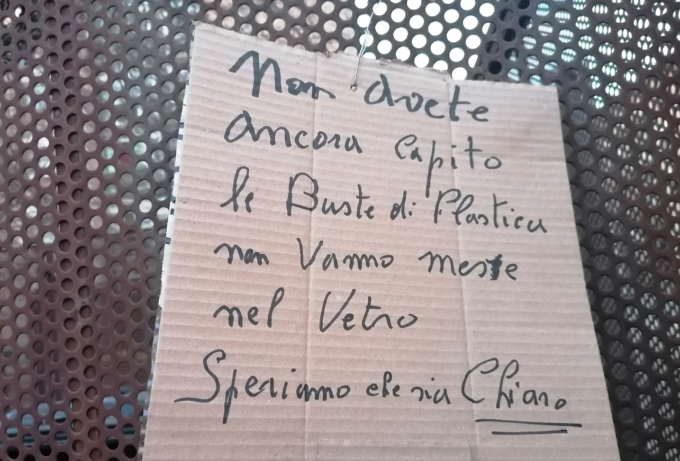 Non avete
ancora Capito
le Buste di Plastica
non Vanno messe
nel Vetro
Speriamo che sia Chiaro